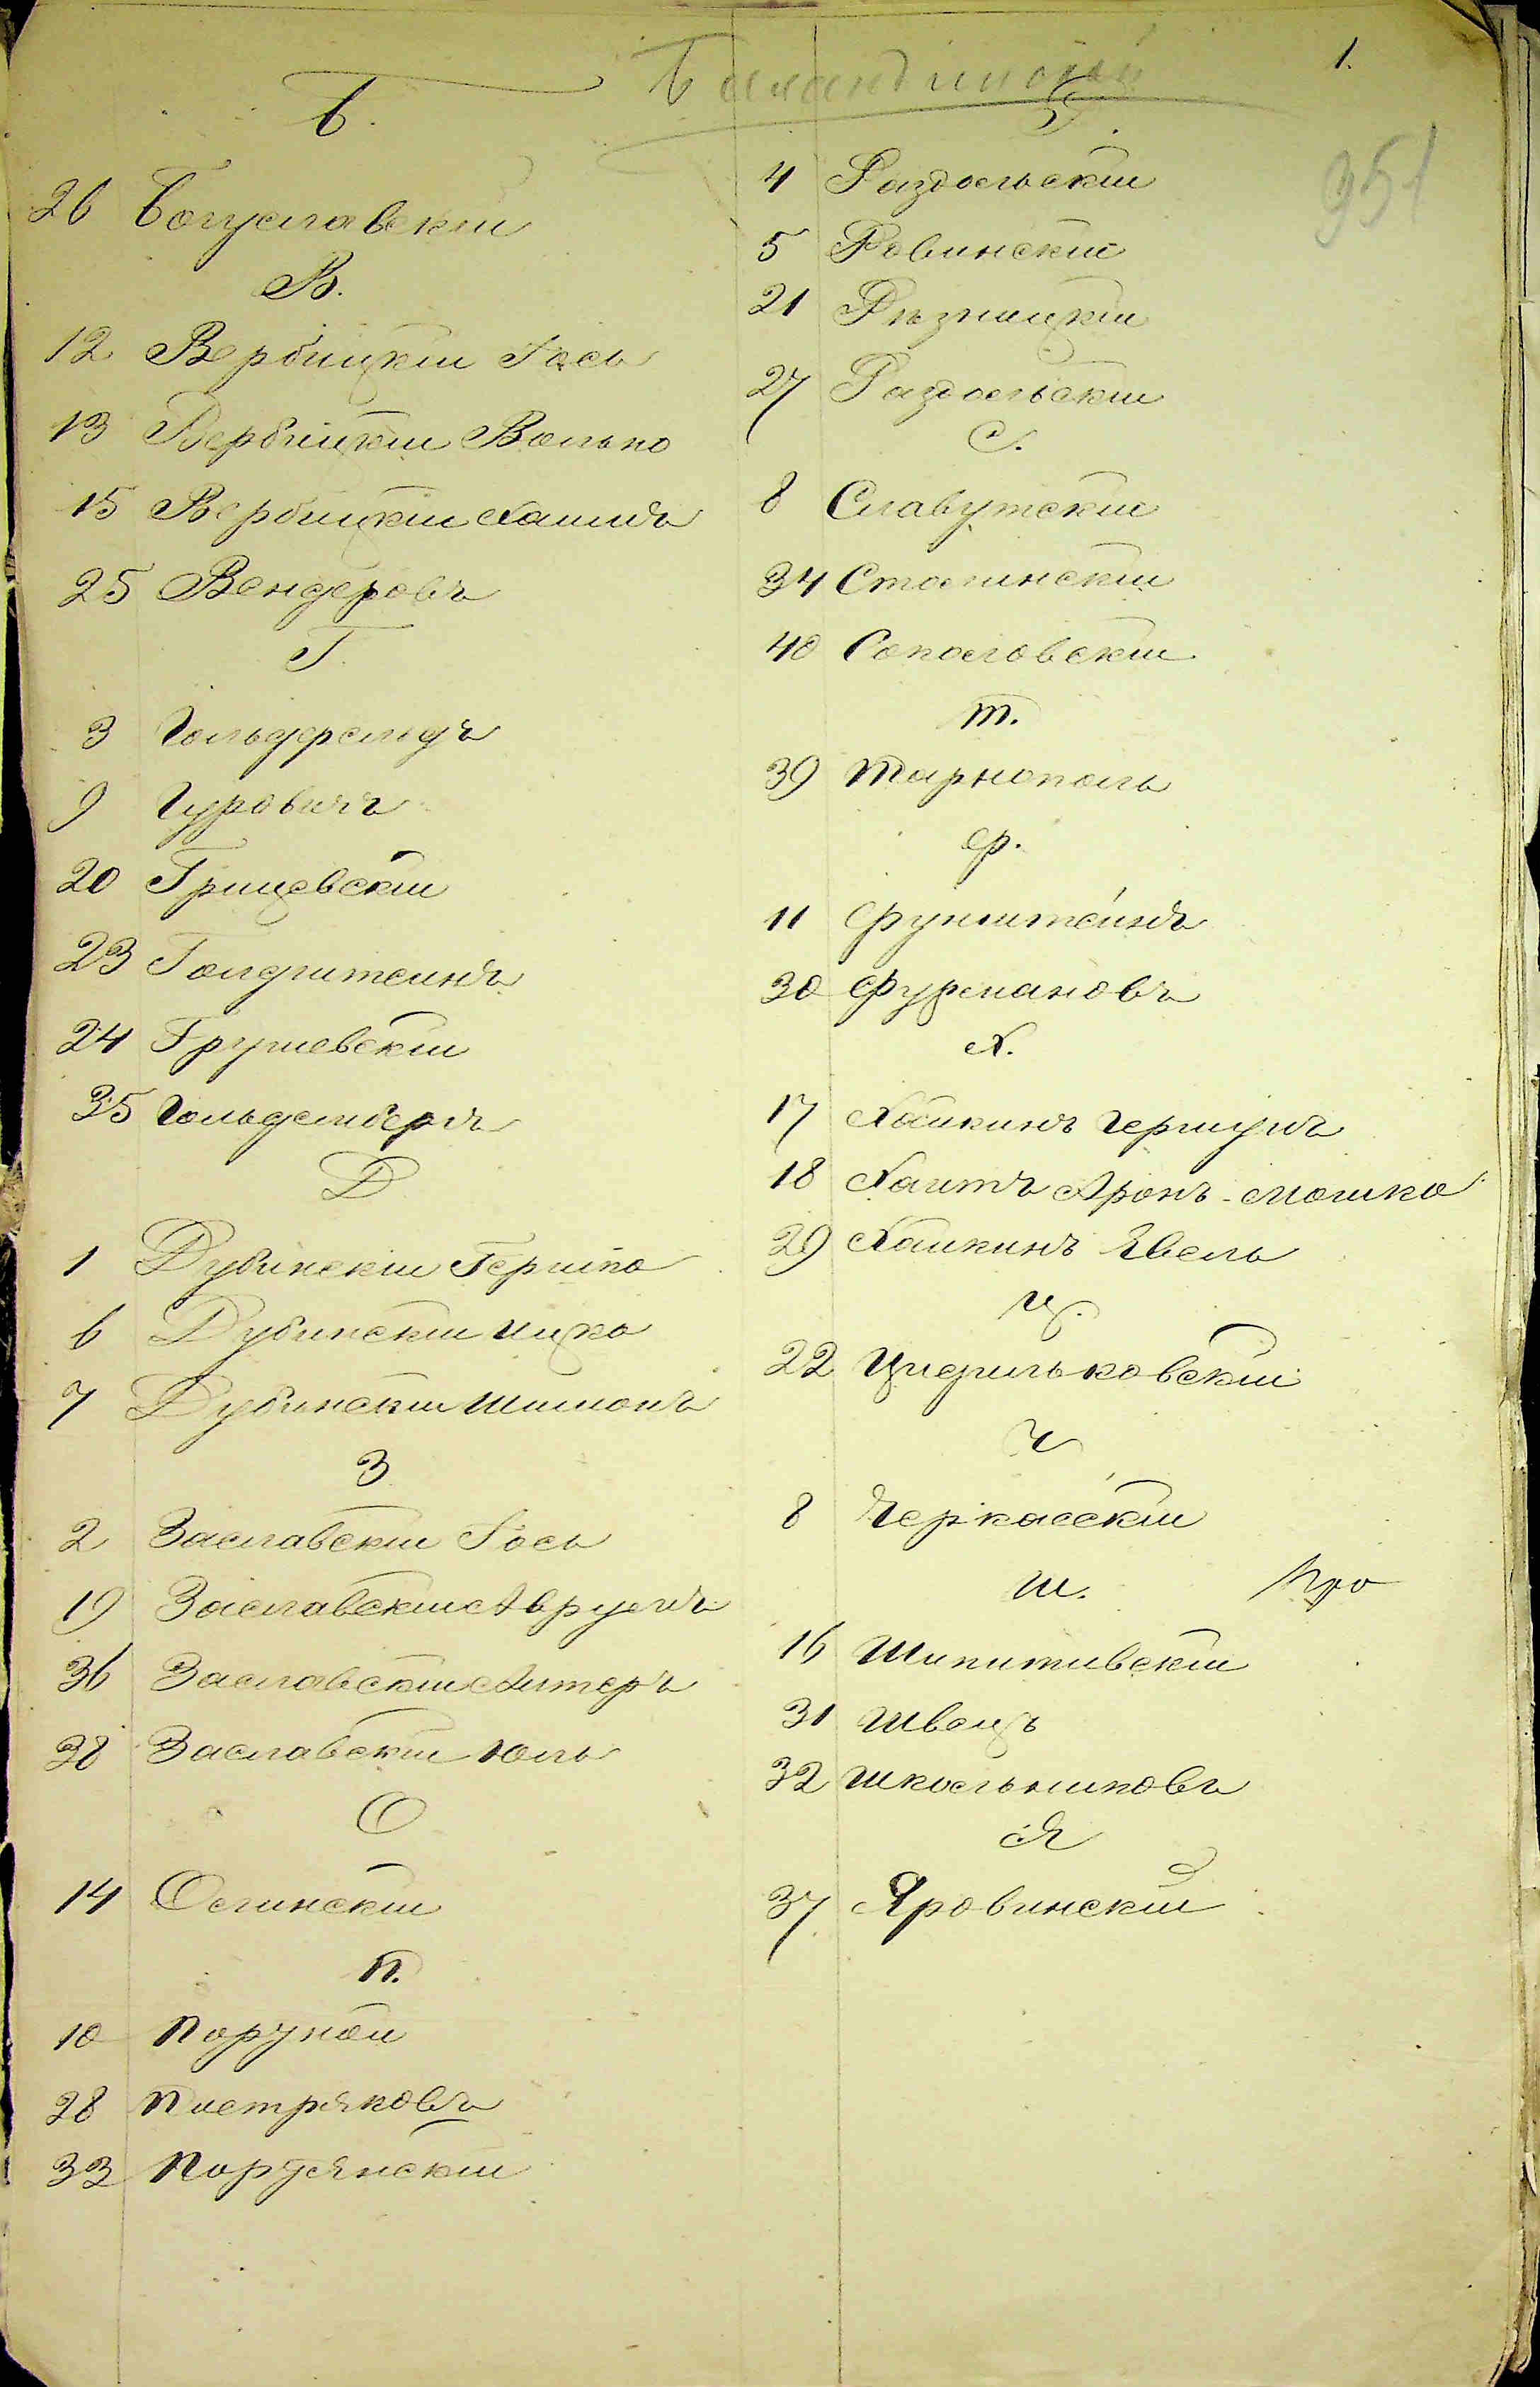 Баландинской
1.
951
Б.
26 Богуславскій
В.
12 Вербицкій Іось
13 Вербицкій Волько
15 Вербицкій Хаимъ
25 Вендеровъ
Г.
3 Гольдфельдъ
9 Гуровичъ
20 Грищевскій
23 Голдштеинъ
24 Грушевскій
35 Гольденбергъ
Д
1 Дубинскій Гершко
6 Дубинскій Ицко
7 Дубинскій Шимонъ
З
2 Заславскій Іось
19 Заславскій Аврумъ
36 Заславскій Алтеръ
38 Заславскій Юль
О
14 Олинскій
П.
10 Порукой
28 Пистряковъ
33
Р.
4 Раздольскій
5 Ровинскій
21 Рѣзницкій
27 Раздольскій
С.
8 Славутскій
34 Столинскій
40 Соколовскій
Т.
39 Тарнополь
Ф.
11 Фунштейнъ
30 Фурмановъ
Х.
17 Хайкинъ Гершунъ
18 Хаитъ Аронъ-Мошко
29 Хаикинъ Явель
Ц.
22
Ч
8 Черкасскій
Ш.
16 Шипитивскій
31 Швецъ
32 Школьниковъ
Я
37 Яровинскій